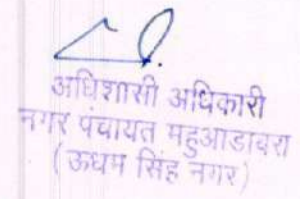 अधिशासी अधिकारी
नगर पंचायत महुआडाबरा
(ऊधम सिंह नगर)